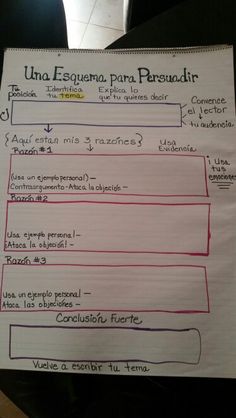 Una Esquema para Persuadir
Tu posición
Identifica tu tema
Explica lo que tu quieres decir
Convence el lector
tu audencia
{Aquí estan mis 3 razones}
Usa Evidencia
Razón #1
(Usa un ejemplo personal) -
Contraargumento - Ataca la objeción -
¡Usa tus emociones!
Razón #2
Usa ejemplo personal -
¡Ataca la objeción! -
Razón #3
Usa un ejemplo personal -
Ataca las objeciones -
Conclusión Fuerte
Vuelve a escribir tu tema